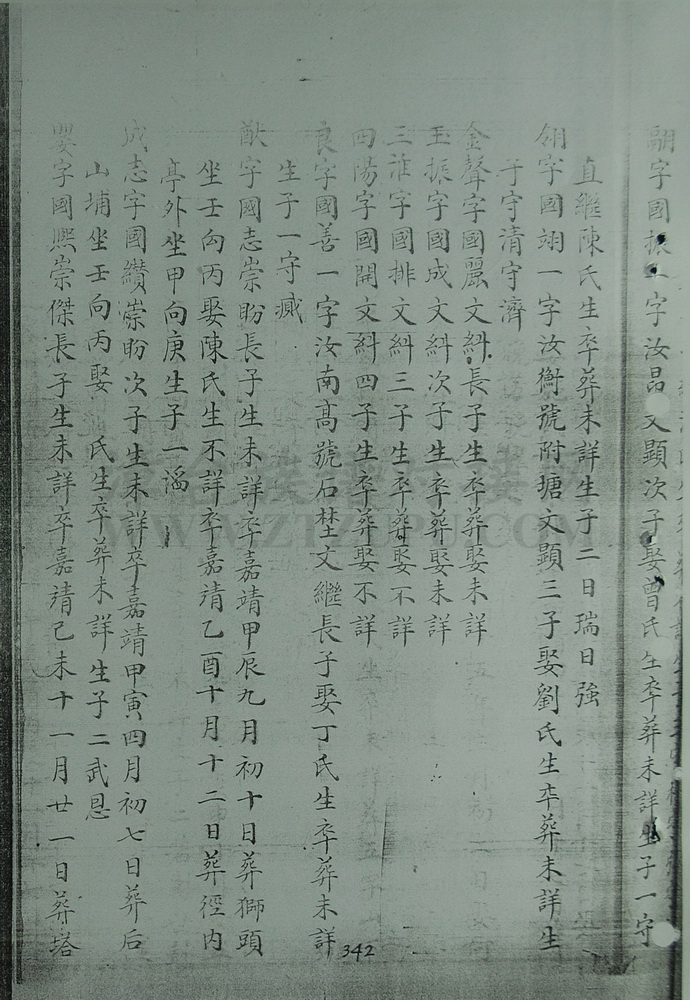 翮字國振一字汝昂文顯次子娶曾氏生卒葬未詳生子一守
直繼陳氏生卒葬未詳生子二日瑞日強
翎字國翊一字汝衡號附塘文顯三子娶劉氏生卒葬未詳生
子守清守濟
金聲字國麗文糾長子生卒葬娶未詳
玉振字國成文糾次子生卒葬娶未詳
三淮字國排文糾三子生卒葬娶不詳
四陽字國開文糾四子生卒葬娶不詳
良字國善一字汝南高號石埜文繼長子娶丁氏生卒葬未詳
生子一守臧
猷字國志崇盼長子生未詳卒嘉靖甲辰九月初十日葬獅頭
坐壬向丙娶陳氏生不詳卒嘉靖乙酉十月十二日葬徑內
亭外坐甲向庚生子一滔
成志字國纘崇盼次子生未詳卒嘉靖甲寅四月初七日葬后
山埔坐壬向丙娶 氏生卒葬未詳生子二武恩
嬰字國熙崇傑長子生未詳卒嘉靖己未十一月廿一日葬塔
342
WWW.WZTZUPU.COM